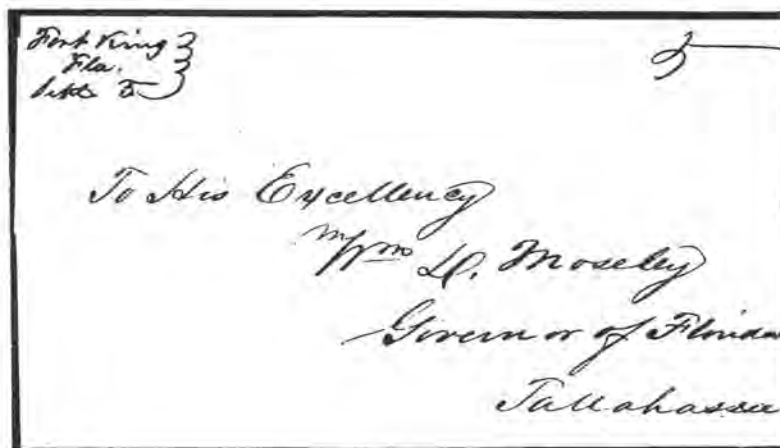 Fort King
Fla.
Octr 5
5
To His Excellency
Wm D. Moseley
Governor of Florida
Tallahassee